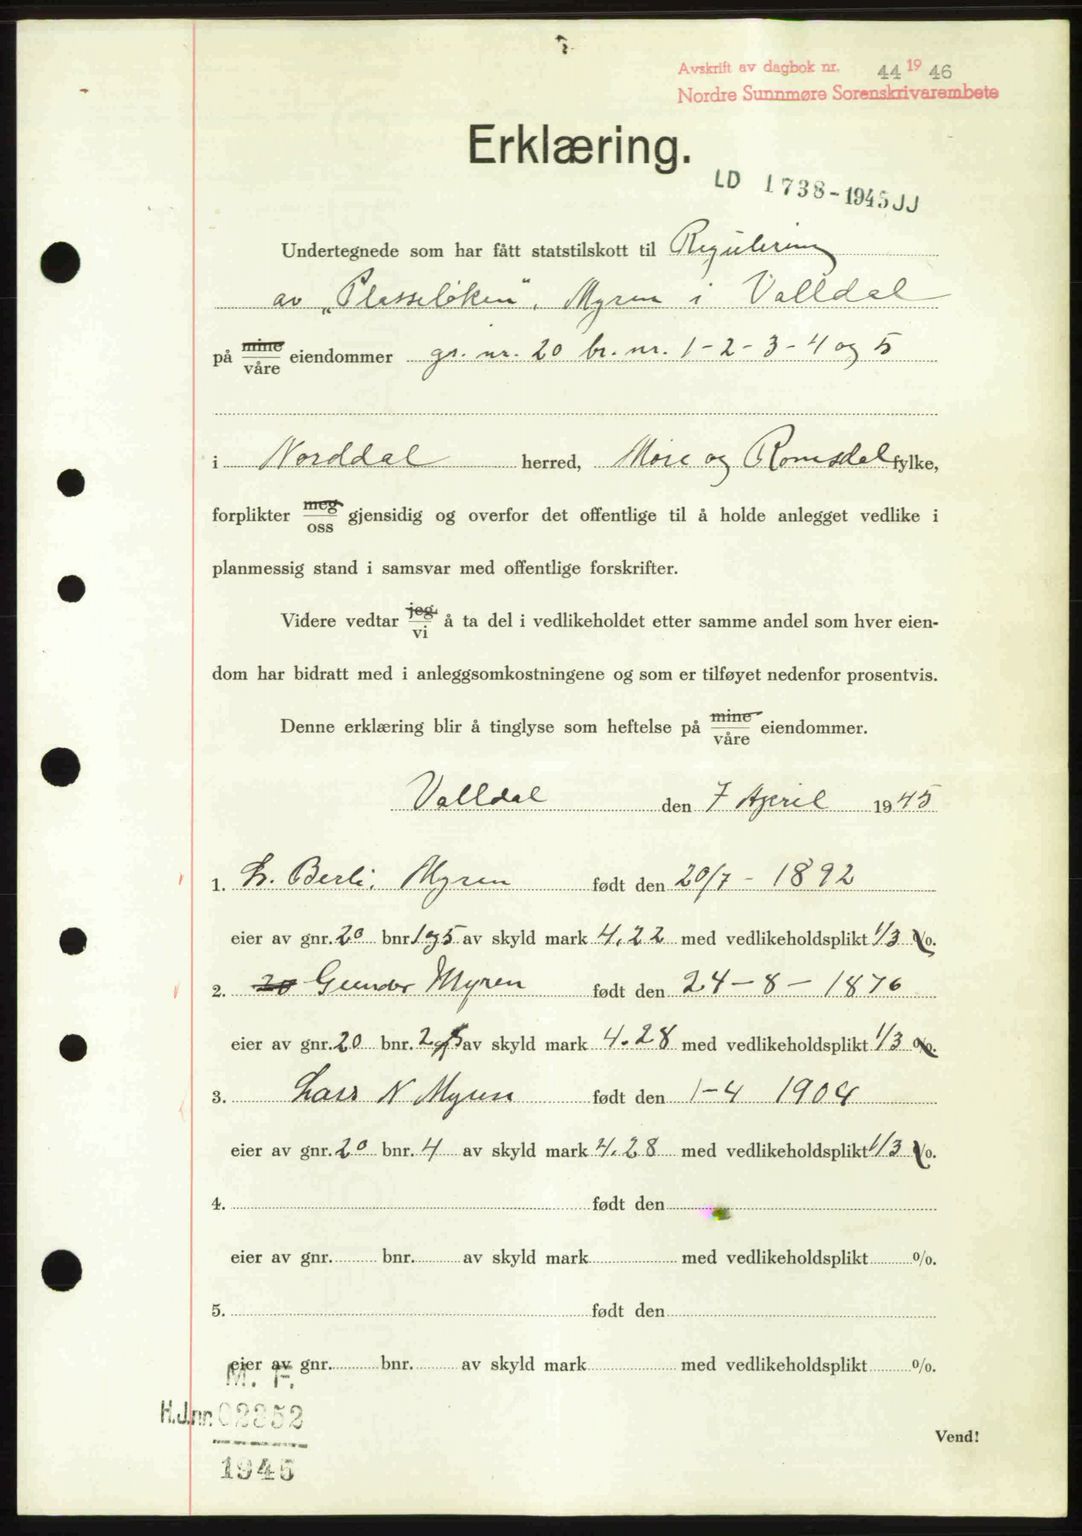 Avskrift av dagbok nr. 44 19 46
Nordre Sunnmøre Sorenskrivarembete
Erklæring.
LD 1738-1945 JJ
Undertegnede som har fått statstilskott til Regulering
av „Plasseløken", Myren i Valldal
på mine våre eiendommer gr. nr. 20 br. nr. 1-2-3-4 og 5
i Norddal herred, Møre og Romsdal fylke,
forplikter meg oss gjensidig og overfor det offentlige til å holde anlegget vedlike i
planmessig stand i samsvar med offentlige forskrifter.
Videre vedtar jeg vi å ta del i vedlikeholdet etter samme andel som hver eien-
dom har bidratt med i anleggsomkostningene og som er tilføyet nedenfor prosentvis.
Denne erklæring blir å tinglyse som heftelse på mine våre eiendommer.
Valldal den 7 April 1945
1. L. Berli. Myren født den 20/7 - 1892
eier av gnr. 20 bnr. 1 og 5 av skyld mark 4.22 med vedlikeholdsplikt 1/3 %.
2. 20 Gunder Myren født den 24-8-1876
eier av gnr. 20 bnr. 2 av skyld mark 4.28 med vedlikeholdsplikt 1/3 %.
3. Lars N Myren født den 1-4 1904
eier av gnr. 20 bnr. 4 av skyld mark 4.28 med vedlikeholdsplikt 1/3 %.
4. født den
eier av gnr. bnr. av skyld mark med vedlikeholdsplikt %.
5. født den
eier av gnr. bnr. av skyld mark med vedlikeholdsplikt %.
M. F.
H.J.nr. 02352
1945
Vend!